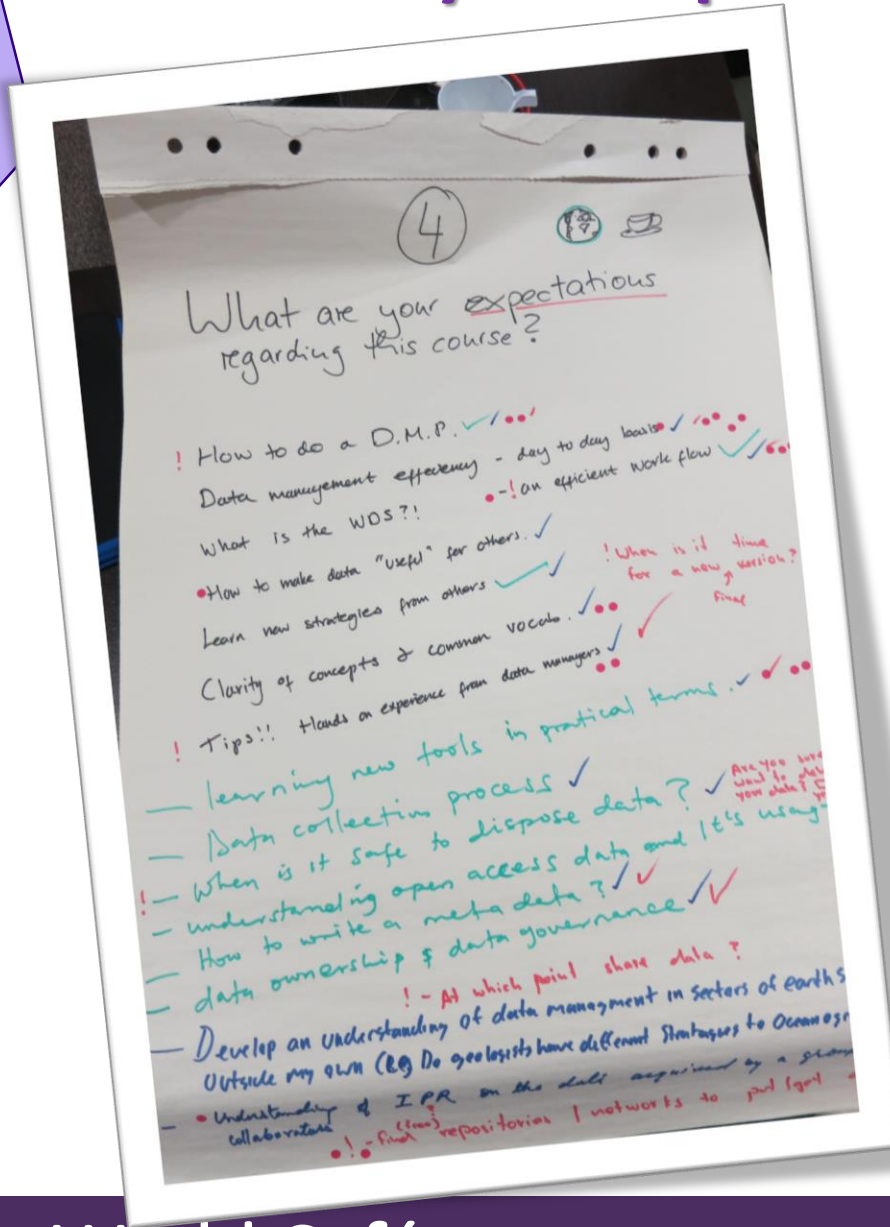 4
What are your expectations
regarding this course?
! How to do a D.M.P.
Data management effeciency - day to day basis
-! an efficient work flow
What is the WDS?!
How to make data "useful" for others.
Learn new strategies from others
! When is it time
for a new version?
final
Clarity of concepts & common vocab.
! Tips!! Hands on experience from data managers
— learning new tools in pratical terms.
— Data collection process
!— When is it safe to dispose data?
Are you
your data?
— understanding open access data and It's
— How to write a meta data?
— data ownership & data governance
! - At which point share data?
— Develop an understanding of data managment in sectors of earth s
outside my own (eg Do geologists have different Stratagies to
- Understanding of IPR on the data acquired by a
collaborators
! - find (free) repositories / networks to put / get